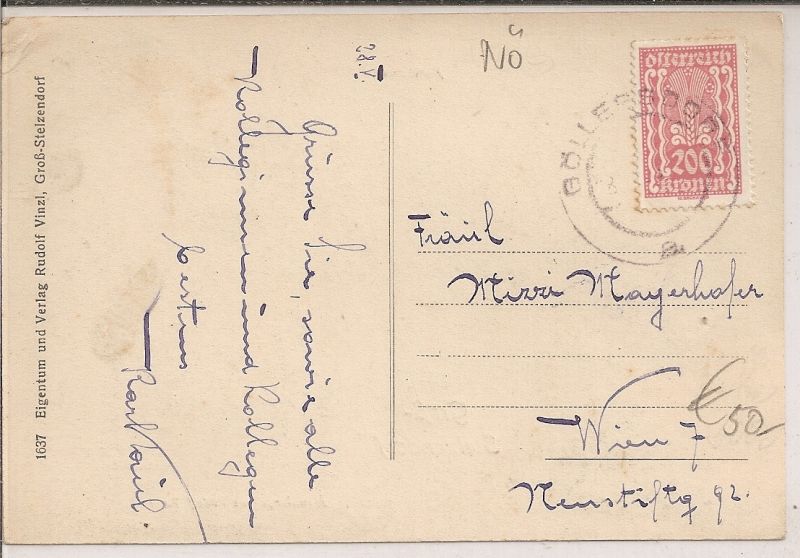 1637 Eigentum und Verlag Rudolf Vinzl, Groß-Stelzendorf
28.V.
Grüsse Sie, sowie alle
Kolleginnen und Kollegen
bestens
Karl
NÖ
Österreich
200
Kronen
GÖLLERSDORF
Fräul
Mizzi Mayerhofer
Wien 7
Neustiftg 92.
€ 50-